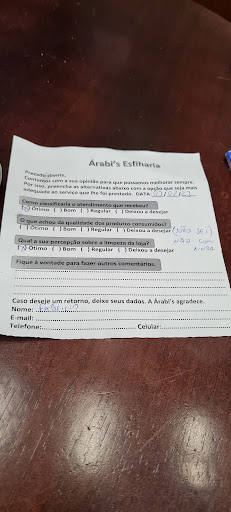 Árabi's Esfiharia
Prezado cliente,
Contamos com a sua opinião para que possamos melhorar sempre.
Por isso, preencha as alternativas abaixo com a opção que seja mais
adequada ao serviço que lhe foi prestado. DATA:
Como classificaria o atendimento que recebeu?
(X) Ótimo ( ) Bom ( ) Regular ( ) Deixou a desejar
O que achou da qualidade dos produtos consumidos?
( ) Ótimo ( ) Bom ( ) Regular ( ) Deixou a desejar (NÃO SEI)
Qual a sua percepção sobre a limpeza da loja? NÃO COMI
(X) Ótimo ( ) Bom ( ) Regular ( ) Deixou a desejar AINDA
Fique à vontade para fazer outros comentários.
Caso deseje um retorno, deixe seus dados. A Árabi's agradece.
Nome:
E-mail:
Telefone: Celular: